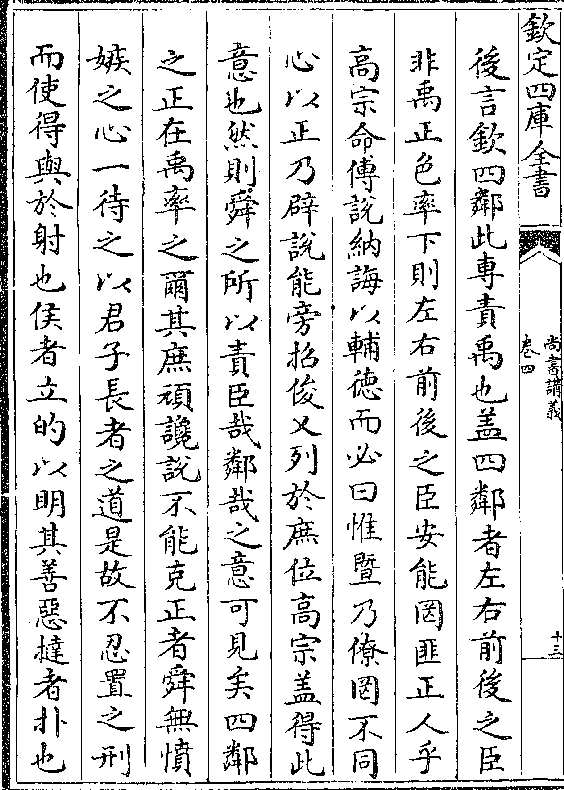 欽定四庫全書
尚書講義
卷四
十三
後言欽四鄰此專責禹也盖四鄰者左右前後之臣
非禹正色率下則左右前後之臣安能罔匪正人乎
高宗命傅說納誨以輔徳而必曰惟暨乃僚罔不同
心以正乃辟說能旁招俊乂列於庶位高宗盖得此
意也然則舜之所以責臣哉鄰哉之意可見矣四鄰
之正在禹率之爾其庶頑讒說不能克正者舜無憤
嫉之心一待之以君子長者之道是故不忍置之刑
而使得與於射也侯者立的以明其善惡撻者扑也